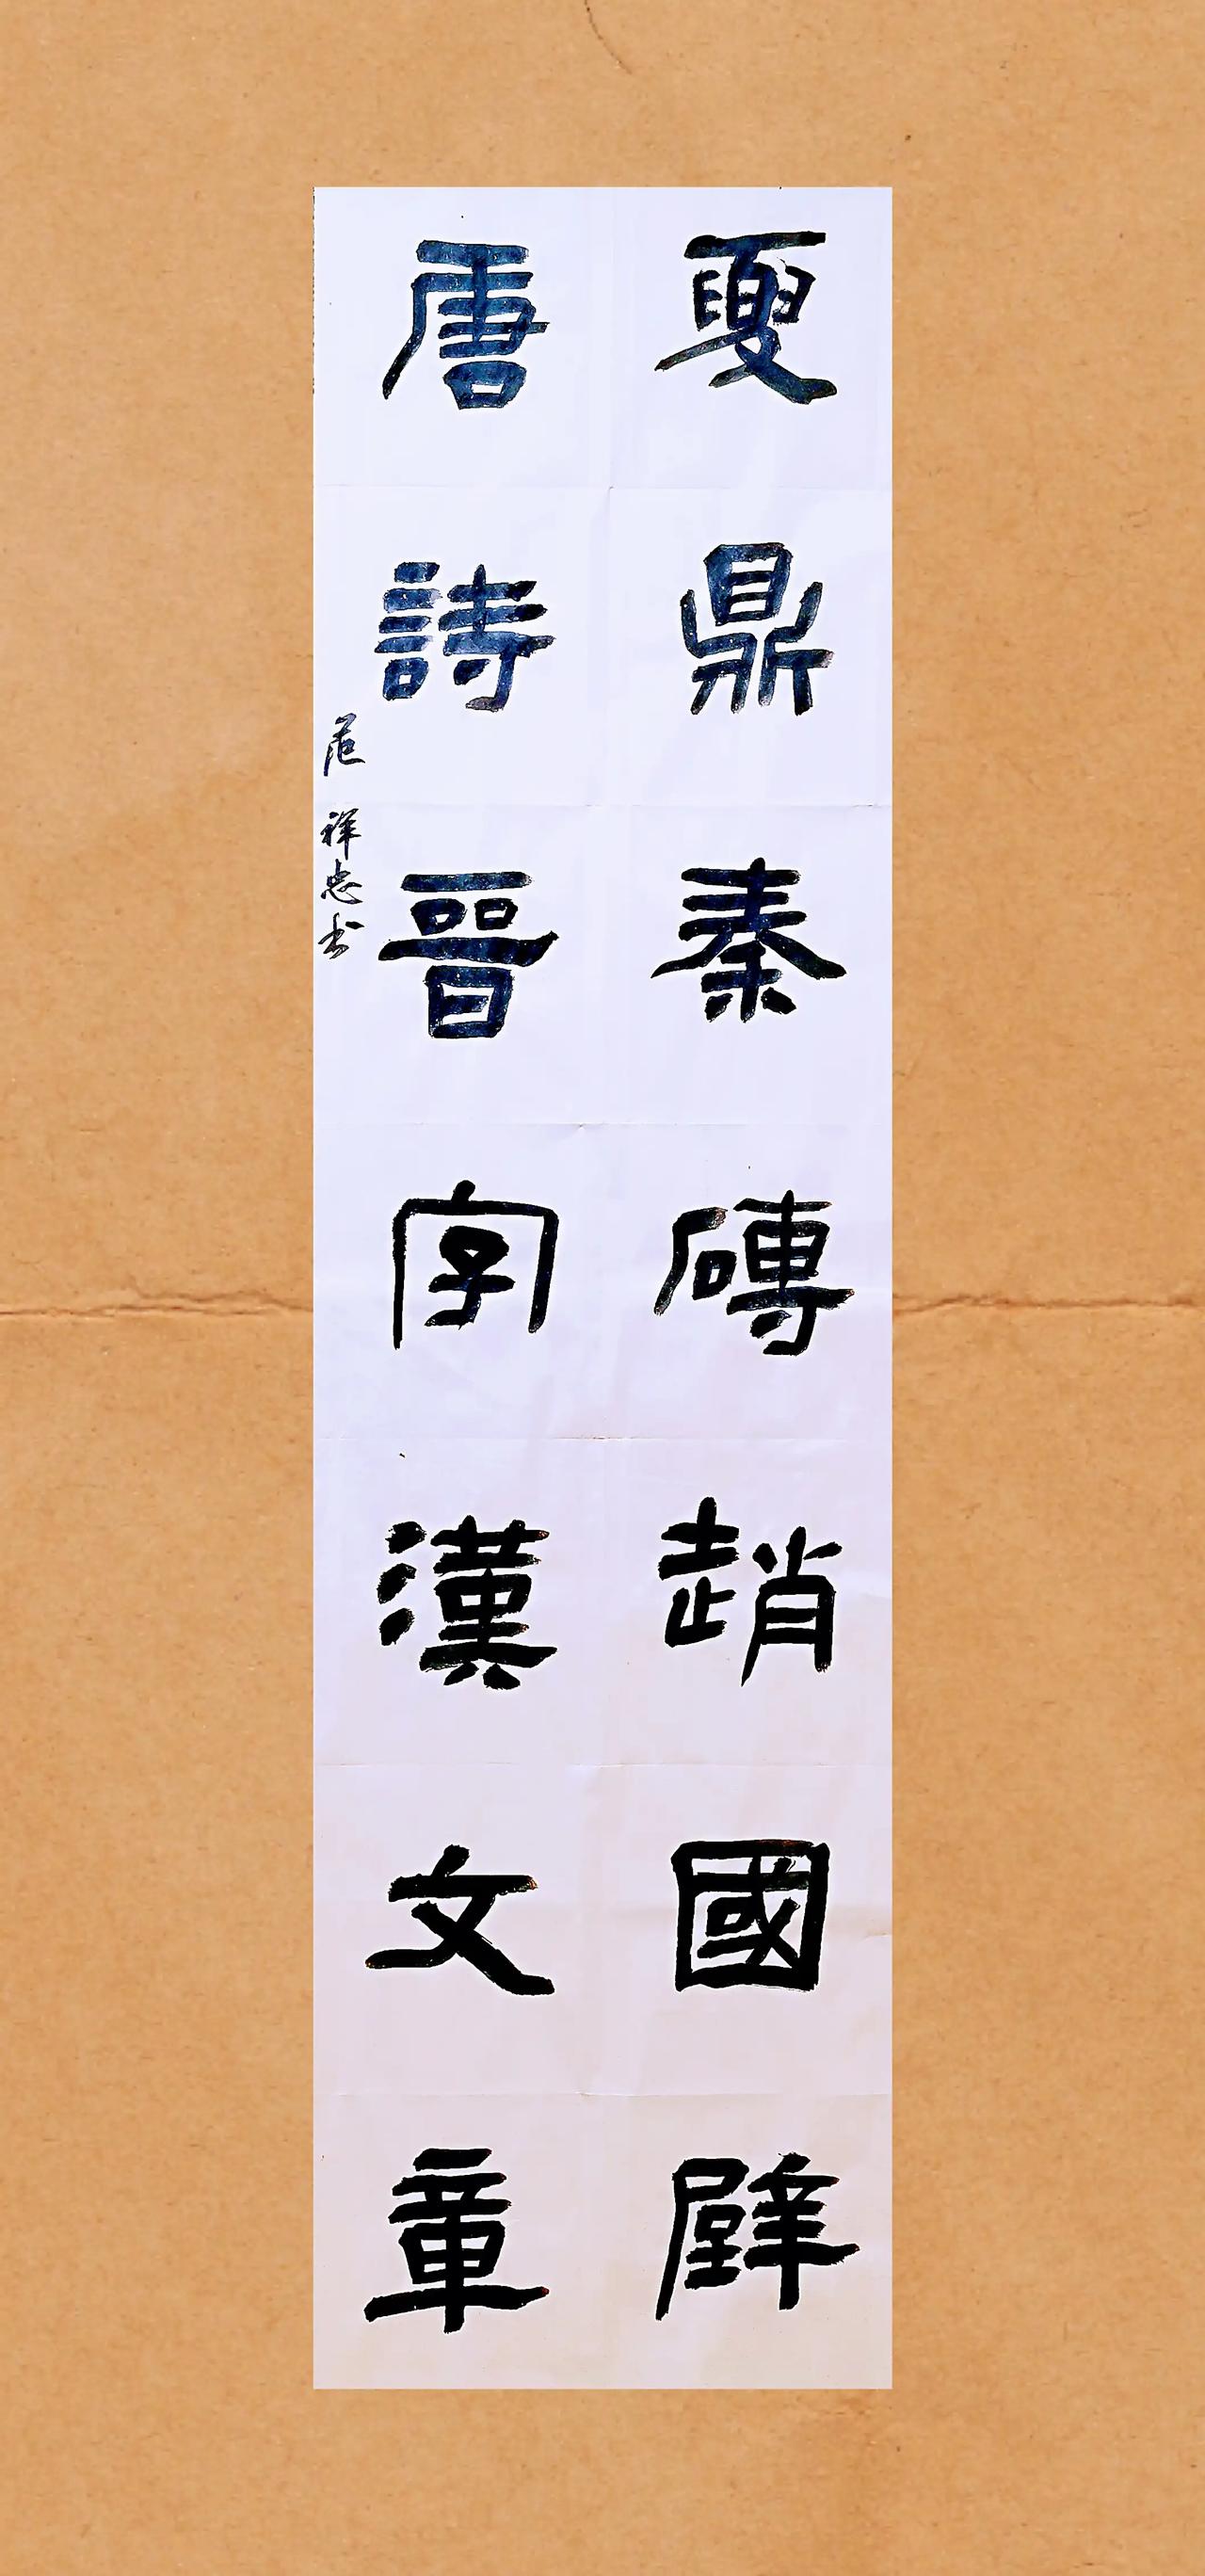 夏鼎秦磚趙國璧
唐詩晉字漢文章
危祥忠书